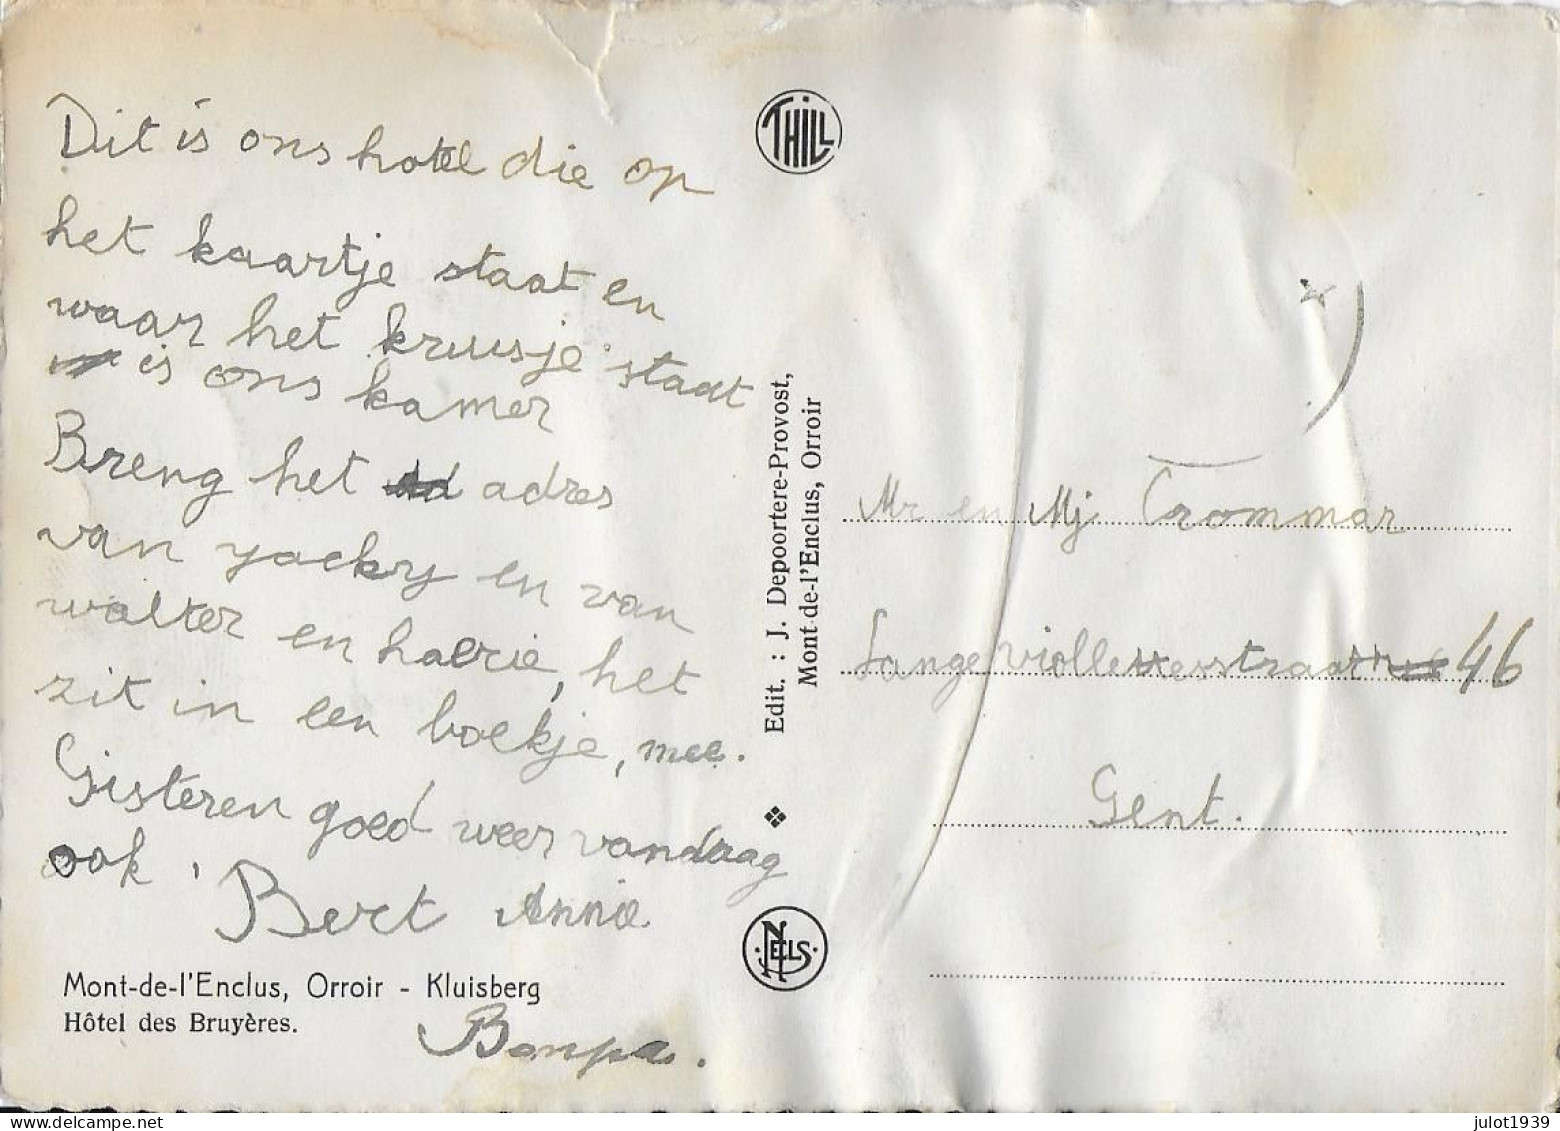 Dit is ons hotel die op
het kaartje staat en
waar het kruisje staat
is ons kamer
Breng het adres
van yacky en van
walter en halrie, het
zit in een boekje, mee.
Gisteren goed weer vandaag
ook,
Bert Annie
Mont-de-l'Enclus, Orroir - Kluisberg
Hôtel des Bruyères.
Bonpa.
THILL
Edit. : J. Depoortere-Provost,
Mont-de-l'Enclus, Orroir
NELS
Mr en Mj Crommar
Lange violettestraat 46
Gent.
julot1939